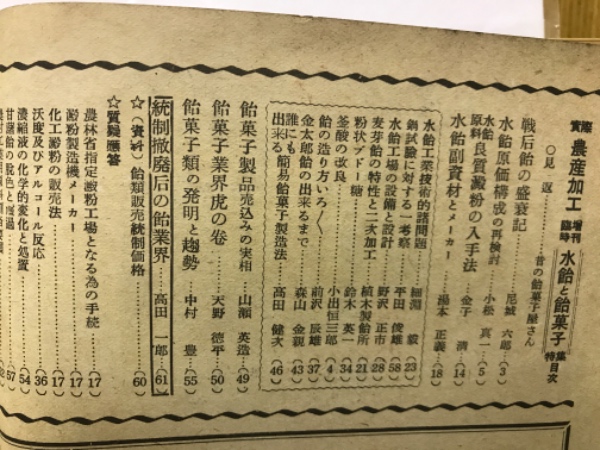 実際 農産加工 臨時増刊 水飴と飴菓子特集 目次
○見返……昔の飴菓子屋さん
戦后飴の盛衰記……尾城 六郎…(3)
水飴原価構成の再検討……小松 真一…(5)
水飴原料良質澱粉の入手法……金子 清…(14)
水飴副資材とメーカー……湯本 正義…(18)
水飴工業技術的諸問題……細淵 毅(23)
鍋試験に対する一考察……平田 俊雄(58)
水飴工場の設備と設計……野沢 正市(28)
麦芽飴の特性と二次加工……植木製飴所(21)
粉状ブドー糖……鈴木 英一(34)
釜酸の改良……小出 恒三郎(4)
飴の造り方いろ〱……前沢 辰雄(37)
金太郎飴の出来るまで……森山 金親(43)
誰にも出来る簡易飴菓子製造法……高田 健次(46)
飴菓子製品売込みの実相……山瀬 英造…(49)
飴菓子業界虎の巻……天野 徳平…(50)
飴菓子類の発明と趨勢……中村 豊…(55)
統制撤廃后の飴業界……高田 一郎…(61)
☆(資料)飴類販売統制価格……(60)
☆質疑應答
農林省指定澱粉工場となる為の手続……(17)
澱粉製造機メーカー……(17)
化工澱粉の販売法……(17)
沃度及びアルコール反応……(36)
濃縮液の化学的変化と処置……(54)
甘藷飴の脱色と濾過……(57)